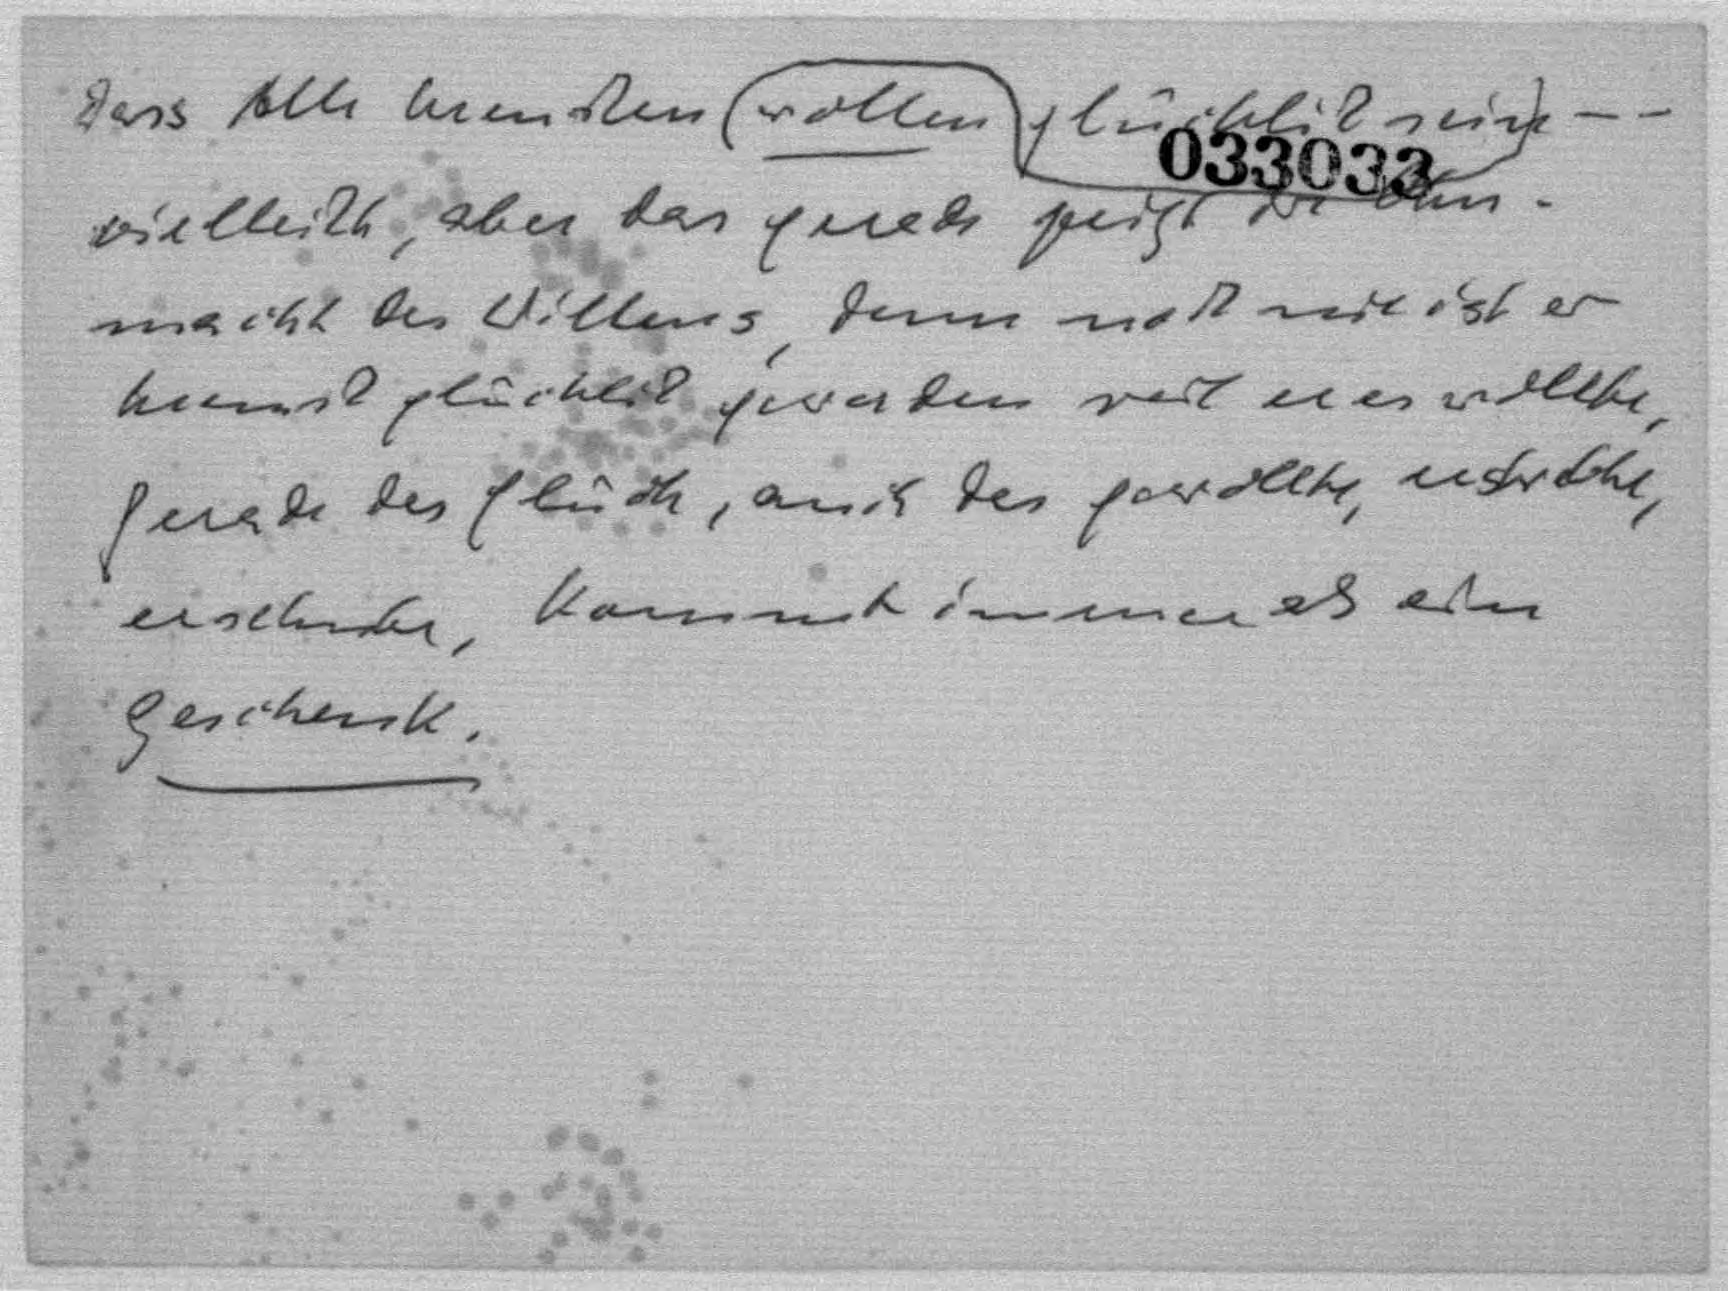 Dass Alle Menschen wollen glücklich sein --
033033
vielleicht, aber das gerade zeigt die Ohn-
macht des Willens, denn noch nie ist er
Mensch glücklich geworden weil er es wollte,
gerade das Glück, auch das gewollte,
ersehnte, kommt immer als ein
Geschenk.